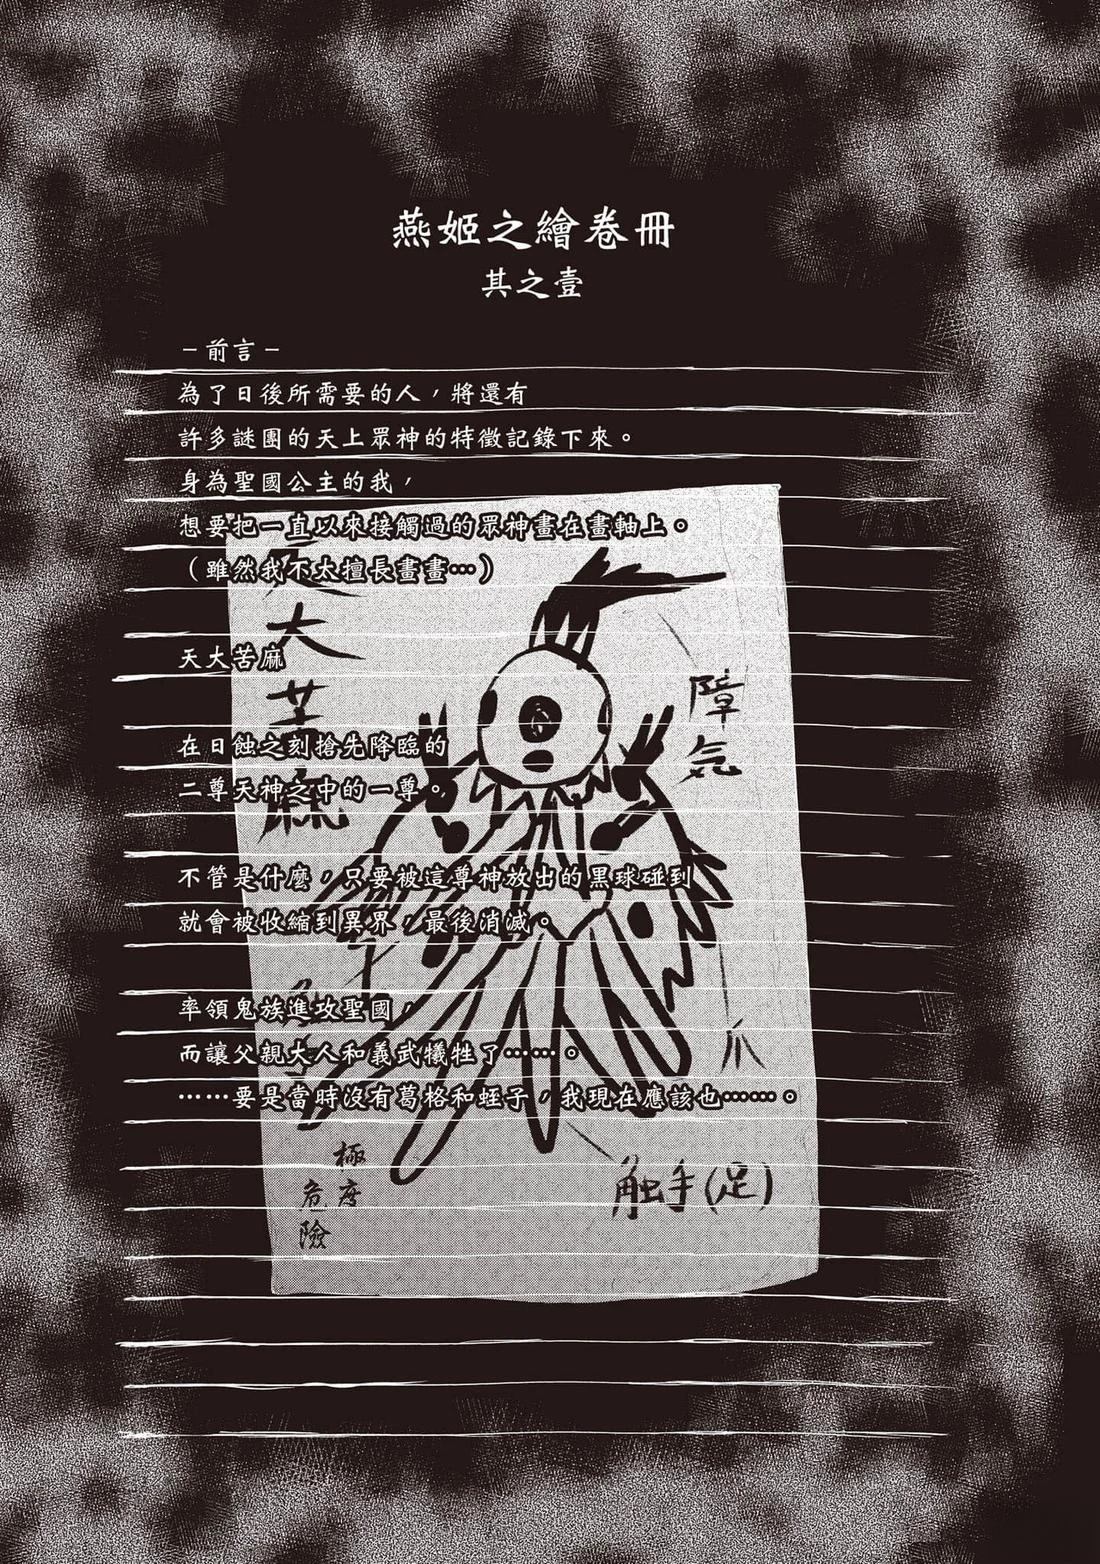 燕姬之繪卷冊
其之壹
－前言－
為了日後所需要的人，將還有
許多謎團的天上眾神的特徵記錄下來。
身為聖國公主的我，
想要把一直以來接觸過的眾神畫在畫軸上。
（雖然我不太擅長畫畫…）
天大苦麻
在日蝕之刻搶先降臨的
二尊天神之中的一尊。
不管是什麼，只要被這尊神放出的黑球碰到
就會被收縮到異界，最後消滅。
率領鬼族進攻聖國，
而讓父親大人和義武犧牲了……。
……要是當時沒有葛格和蛭子，我現在應該也……。
天大苦麻
障気
爪
触手(足)
極度
危險